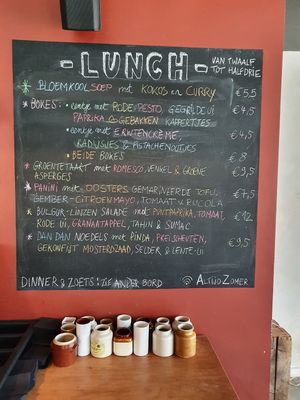 - LUNCH -
VAN TWAALF
TOT HALFDRIE
* BLOEMKOOLSOEP met KOKOS en CURRY € 5,5
* BOKES: • eentje met RODE PESTO, GEGRILDE UI € 4,5
PAPRIKA & GEBAKKEN KAPPERTJES
• eentje met ERWTENCRÈME, € 4,5
RADIJSJES & PISTACHENOOTJES
• BEIDE BOKES € 8
* GROENTETAART met ROMESCO, VENKEL & GROENE € 9,5
ASPERGES
* PANINI met OOSTERS GEMARINEERDE TOFU, € 7,5
GEMBER-CITROENMAYO, TOMAAT & RUCOLA
* BULGUR-LINZEN SALADE met PUNTPAPRIKA, TOMAAT, € 12
RODE UI, GRANAATAPPEL, TAHIN & SUMAC
* DAN DAN NOEDELS met PINDA, PREISCHEUTEN, € 9,5
GEKONFIJT MOSTERDZAAD, SELDER & LENTE-UI
DINNER & ZOETS: ZIE ANDER BORD
ALTIJDZOMER